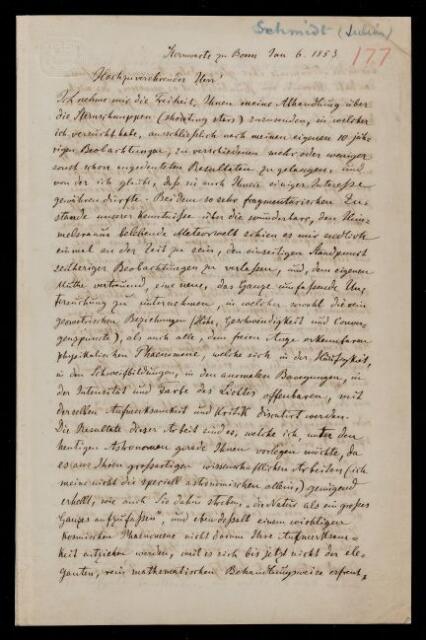 Schmidt (Julius)
177
Sternwarte zu Bonn Jan 6. 1853
Hochzuverehrender Herr!
Ich nehme mir die Freiheit, Ihnen meine Abhandlung über
die Sternschnuppen (shooting stars) zuzusenden, in welcher
ich versucht habe, ausschließlich nach meinen eigenen 10 jäh-
rigen Beobachtungen, zu verschiedenen mehr oder weniger
sonst schon angedeuteten Resultaten zu gelangen, und
von der ich glaubte, daß sie auch Ihnen einiges Interesse
gewähren dürfte. Bei dem so sehr fragmentarischen Zu-
stande unserer Kenntnisse über die wunderbare, den Him-
melsraum belebende Meteorwelt schien es mir endlich
einmal an der Zeit zu sein, den einseitigen Standpunct
seitheriger Beobachtungen zu verlassen, und, dem eigenen
Muthe vertrauend, eine neue, das Ganze umfassende Un-
tersuchung zu unternehmen, in welcher sowohl die rein
geometrischen Beziehungen (Höhe, Geschwindigkeit und Conver-
genzpuncte), als auch alle, dem freien Auge erkennbaren
physikalischen Phaenomene, welche sich in der Häufigkeit,
in den Schweifbildungen, in den anomalen Bewegungen, in
der Intensität und Farbe des Lichtes offenbaren, mit
derselben Aufmerksamkeit und Kritik discutirt werden.
Die Resultate dieser Arbeit sind es, welche ich, unter den
heutigen Astronomen gerade Ihnen vorlegen möchte, da
es aus Ihren großartigen wissenschaftlichen Arbeiten (ich
meine nicht die speciell astronomischen allein,) genügend
erhellt, wie auch Sie dahin streben, „die Natur als ein großes
Ganzes aufzufassen", und ebendeßhalb einem wichtigen
kosmischen Phänomene nicht darum Ihre Aufmerksam-
keit entziehen werden, weil es sich bis jetzt nicht der ele-
ganten, rein mathematischen Behandlungsweise erfreut,